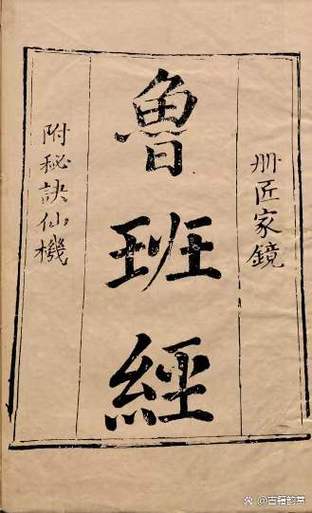 卌匠家鏡
魯班經
附秘訣仙機
@古籍韵荼